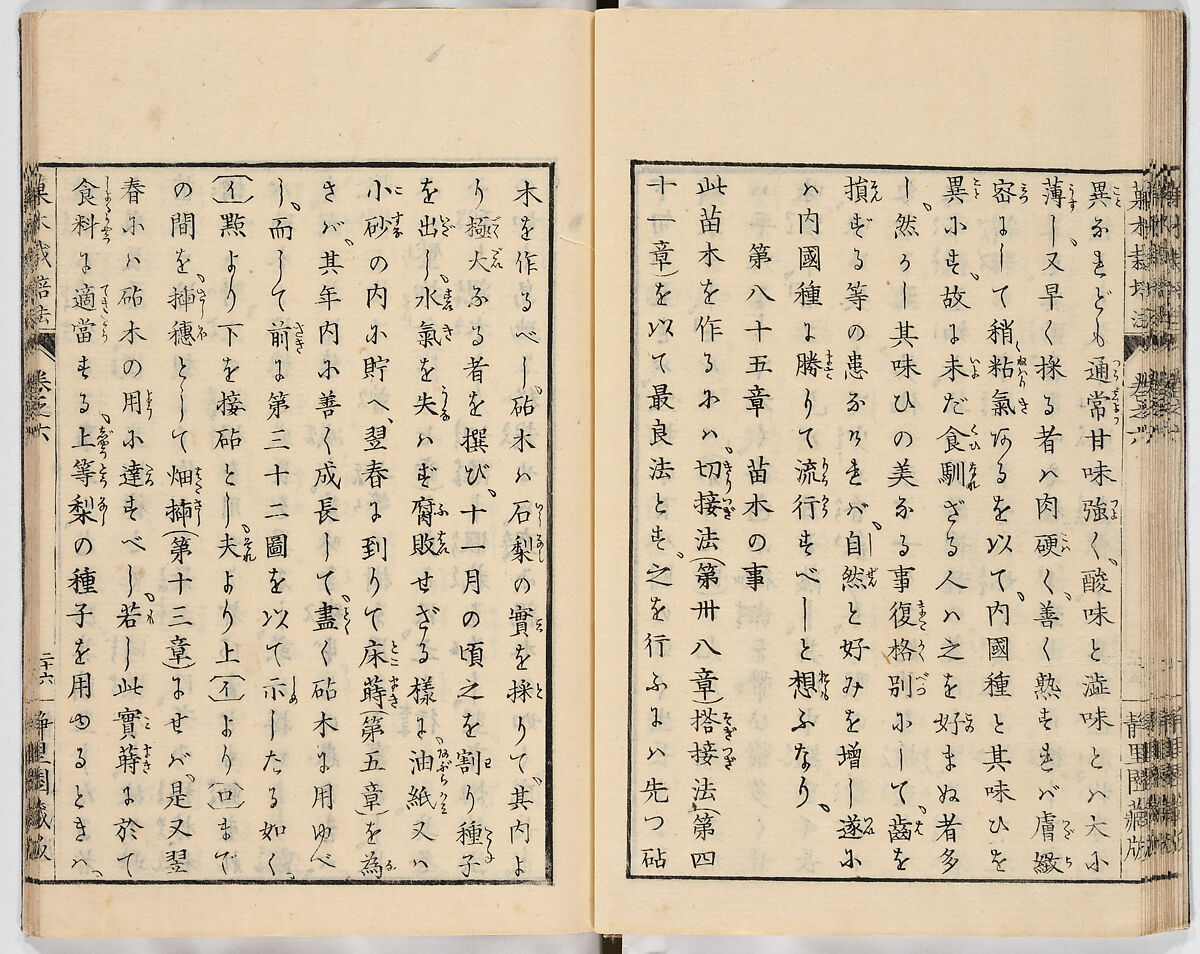 異なれども通常甘味強く、酸味と澁味とハ大に
薄し、又早く採る者ハ肉硬く、善く熟すれバ膚緻
密にして稍粘氣あるを以て、内國種と其味ひを
異にす、故に未だ食馴ざる人ハ之を好まぬ者多
し、然るし其味ひの美なる事復格別にして、齒を
損ずる等の患なけれバ、自然と好みを增し遂に
ハ内國種に勝りて流行すべしと想ふなり、
第八十五章 苗木の事
此苗木を作るにハ切接法(第卅八章)搭接法(第四
十一章)を以て最良法とす、之を行ふにハ先つ砧
木を作るべし、砧木ハ石梨の實を採りて、其内よ
り極大なる者を撰び、十一月の頃之を割り種子
を出し、水氣を失ハず腐敗せざる樣に油紙又ハ
小砂の内に貯へ、翌春に到りて床蒔(第五章)を為
さバ、其年内に善く成長して、盡く砧木に用ゆべ
し、而して前に第三十二圖を以て示したる如く、
(イ)點より下を接砧とし、夫より上(イ)より(ロ)まで
の間を、揷穗として畑揷(第十三章)にせバ、是又翌
春にハ砧木の用に達すべし、若し此實蒔に於て
食料に適當する、上等梨の種子を用ゆるときハ、
菓木栽培法
卷之六
二十六
靜里園藏版